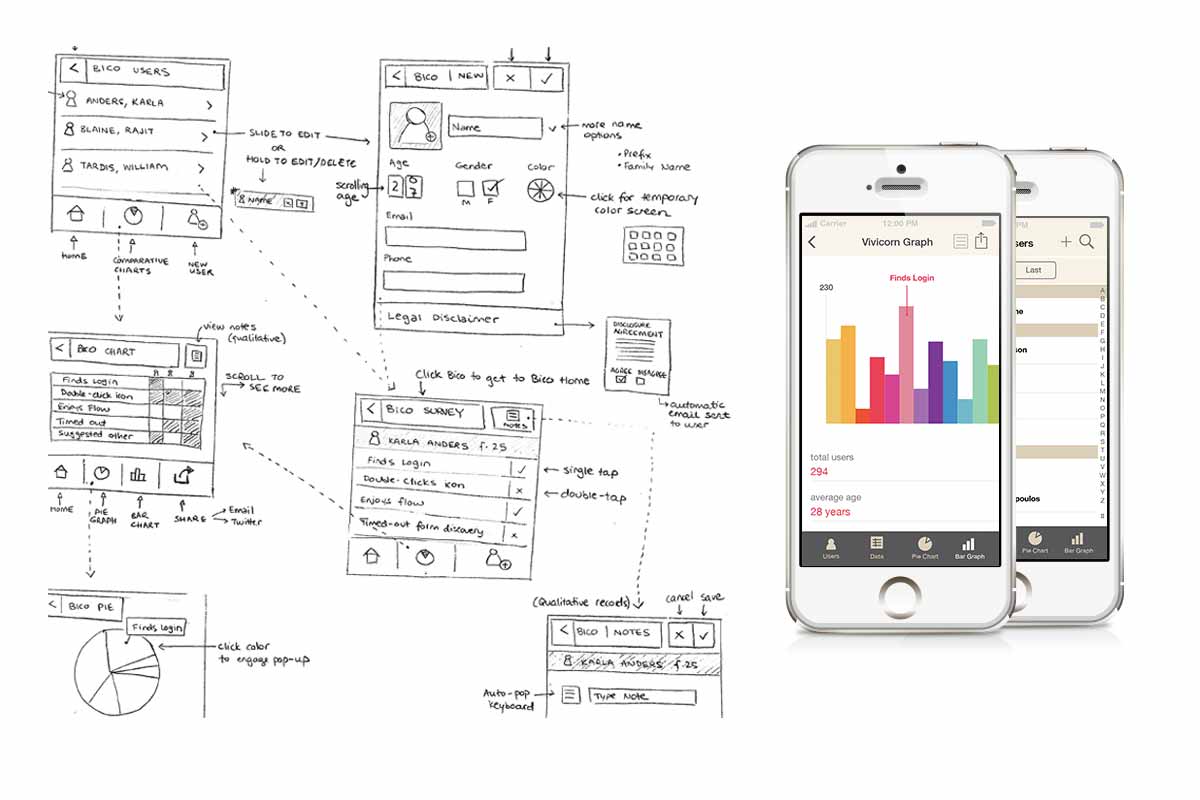 BICO USERS
ANDERS, KARLA
BLAINE, RAJIT
TARDIS, WILLIAM
HOME
COMPARATIVE
CHARTS
NEW
USER
SLIDE TO EDIT
OR
HOLD TO EDIT/DELETE
NAME
BICO | NEW
Name
more name
options
• Prefix
• Family Name
Age
Gender
Color
scrolling
age
2 07
M F
click for temporary
color screen
Email
Phone
Legal Disclaimer
DISCLOSURE
AGREEMENT
AGREE DISAGREE
automatic
email sent
to user
view notes
(qualitative)
BICO CHART
SCROLL TO
SEE MORE
Finds Login
Double-click icon
Enjoys Flow
Timed out
Suggested other
HOME
PIE
GRAPH
BAR
CHART
SHARE
Email
Twitter
Click Bico to get to Bico Home
BICO SURVEY
NOTES
KARLA ANDERS f. 25
Finds Login
Double-clicks icon
Enjoys flow
Timed-out form discovery
single tap
double-tap
BICO PIE
Finds Login
click color
to engage pop-up
(Qualitative records)
cancel save
BICO | NOTES
KARLA ANDERS f. 25
Auto-pop
keyboard
TYPE NOTE
Carrier
12:00 PM
Vivicorn Graph
Finds Login
230
total users
294
average age
28 years
Users
Data
Pie Chart
Bar Graph
PM
sers
Last
ne
son
poulos
A
B
C
D
E
F
G
H
I
J
K
L
M
N
O
P
Q
R
S
T
U
V
W
X
Y
Z
#
Pie Chart
Bar Graph